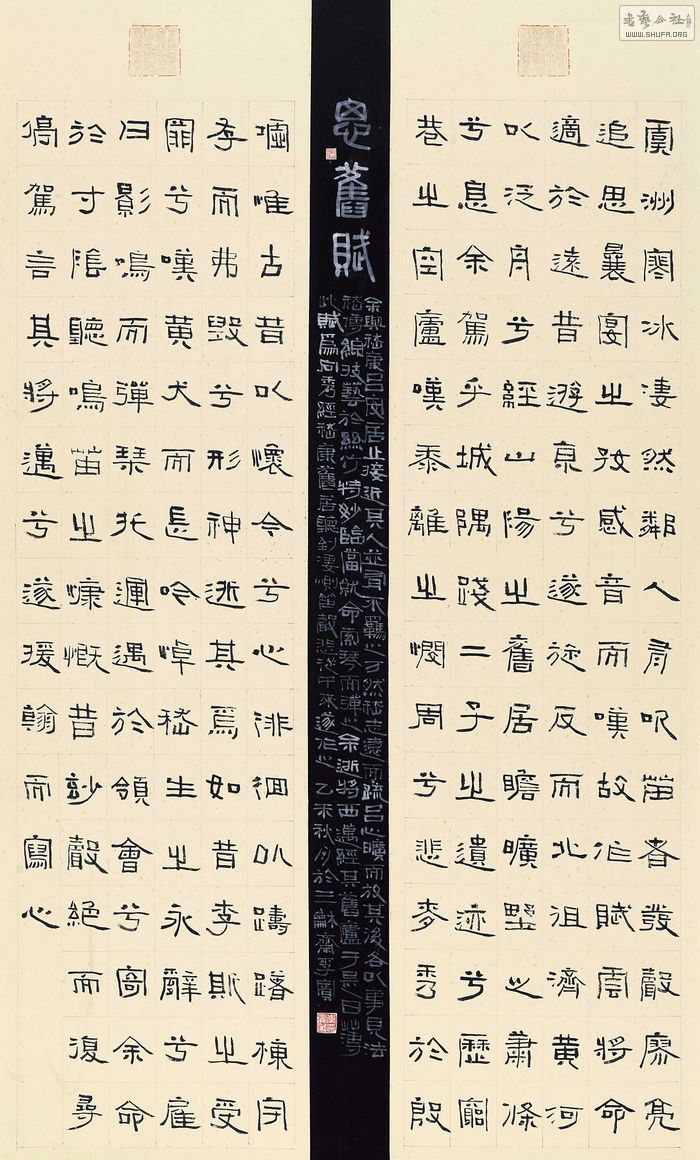 思舊賦
余與嵇康呂安居止接近其人並有不羈之才然嵇志遠而疏呂心曠而放其後各以事見法
嵇博綜技藝於絲竹特妙臨當就命索琴而彈之余逝將西邁經其舊廬于時日薄
虞淵寒冰淒然鄰人有吹笛者發聲寥亮
追思曩宴之好感音而嘆故作賦雲將命
適於遠昔遊京兮遂旋反而北徂濟黃河
以泛舟兮經山陽之舊居瞻曠野之蕭條
兮息余駕乎城隅踐二子之遺迹兮歷窮
巷之空廬嘆黍離之憫周兮悲麥秀於殷
墟惟古昔以懷今兮心徘徊以躊躇棟宇
存而弗毀兮形神逝其焉如昔李斯之受
罪兮嘆黃犬而長吟悼嵇生之永辭兮雇
日影鳴而彈琴托運遇於領會兮寄余命
於寸陰聽鳴笛之慷慨昔妙聲絕而復尋
停駕言其將邁兮遂援翰而寫心
此賦爲向秀經嵇康舊居聽到淒惻笛聲悲從中來遂作之乙未秋月於三龢齋李賓
書藝公社
WWW.SHUFA.ORG